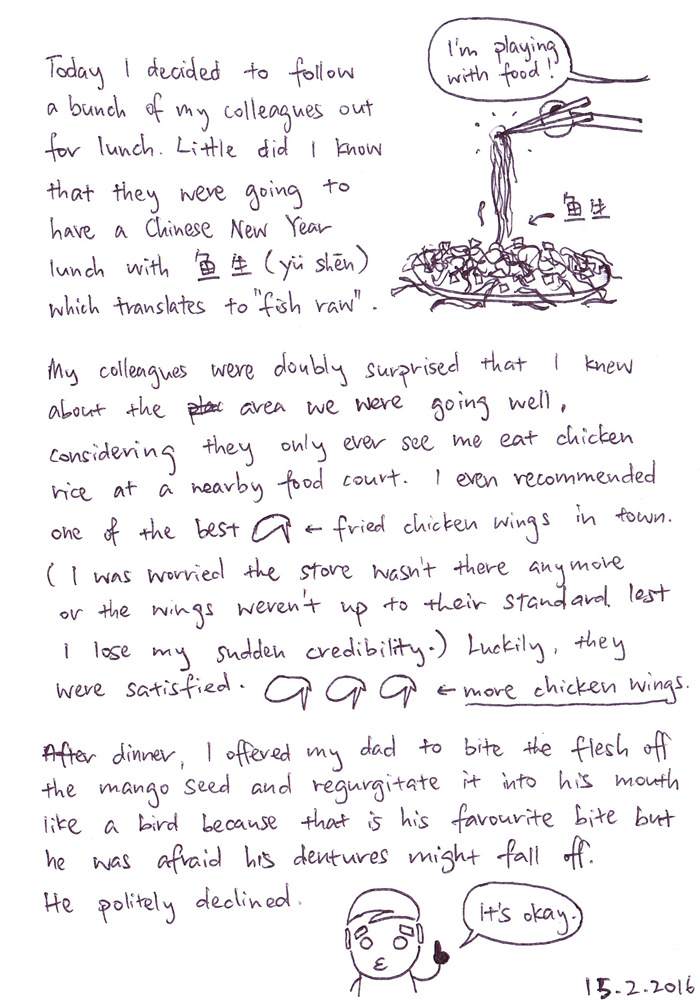 I'm playing
with food!
Today I decided to follow
a bunch of my colleagues out
for lunch. Little did I know
that they were going to
have a Chinese New Year
lunch with 鱼生 (yü shēn)
which translates to "fish raw".
鱼生
My colleagues were doubly surprised that I knew
about the area we were going well,
considering they only ever see me eat chicken
rice at a nearby food court. I even recommended
one of the best ← fried chicken wings in town.
(I was worried the store wasn't there anymore
or the wings weren't up to their standard lest
I lose my sudden credibility.) Luckily, they
were satisfied. ← more chicken wings.
After dinner, I offered my dad to bite the flesh off
the mango seed and regurgitate it into his mouth
like a bird because that is his favourite bite but
he was afraid his dentures might fall off.
He politely declined.
it's okay.
15.2.2016